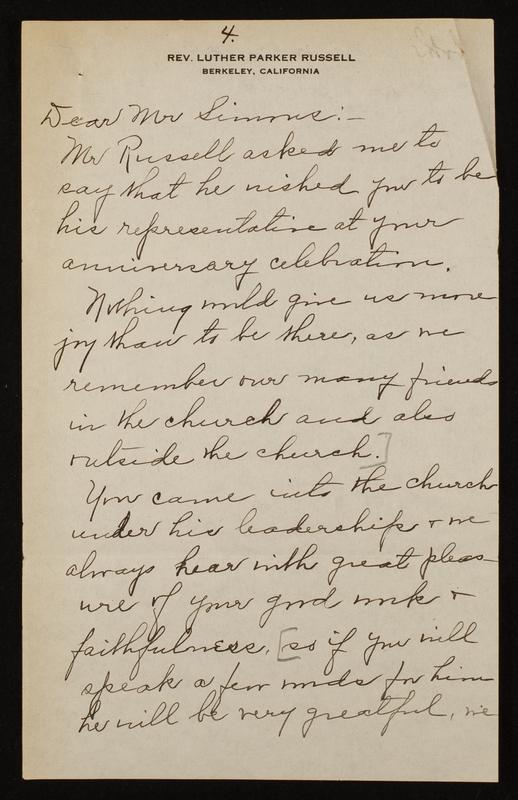 4.
REV. LUTHER PARKER RUSSELL
BERKELEY, CALIFORNIA
Dear Mr Simms:-
Mr Russell asked me to
say that he wished you to be
his representative at your
anniversary celebration.
Nothing would give us more
joy than to be there, as we
remember our many friends
in the church and also
outside the church.]
You came into the church
under his leadership & we
always hear with great pleas-
ure of your good work &
faithfulness, [so if you will
speak a few words for him
he will be very greatful, we